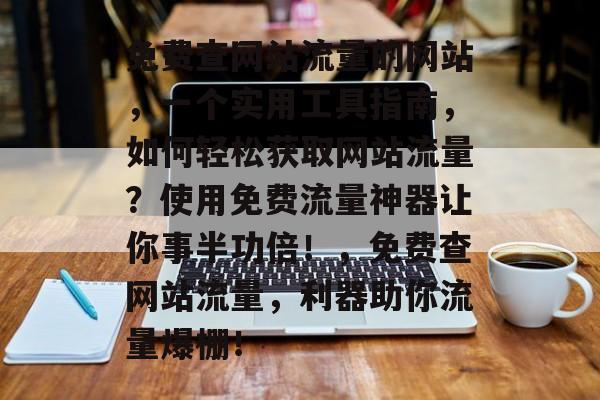 免费查网站流量的网站
，一个实用工具指南，
如何轻松获取网站流量
？使用免费流量神器让
你事半功倍！，免费查
网站流量，利器助你流
量爆棚！